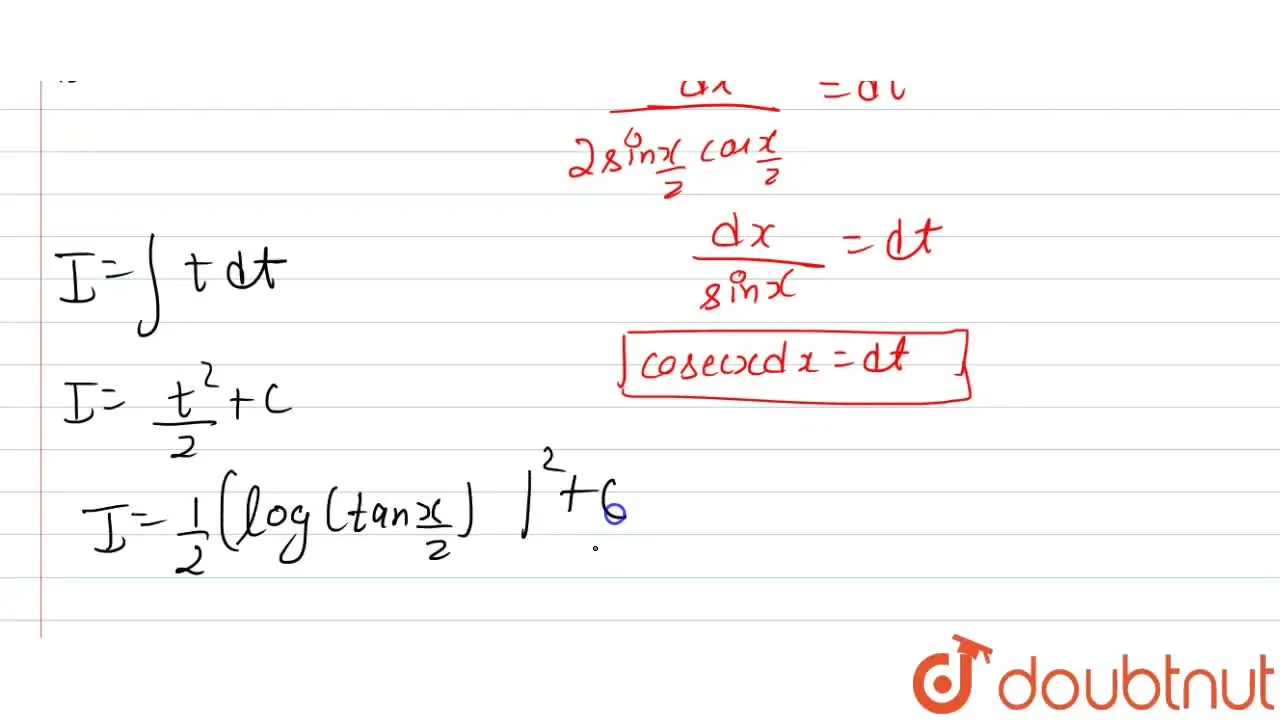 dx = dt
2 sin x/2 cos x/2
dx/sin x = dt
cosec x dx = dt
I = ∫ t dt
I = t²/2 + C
I = 1/2 (log (tan x/2))² + C
doubtnut